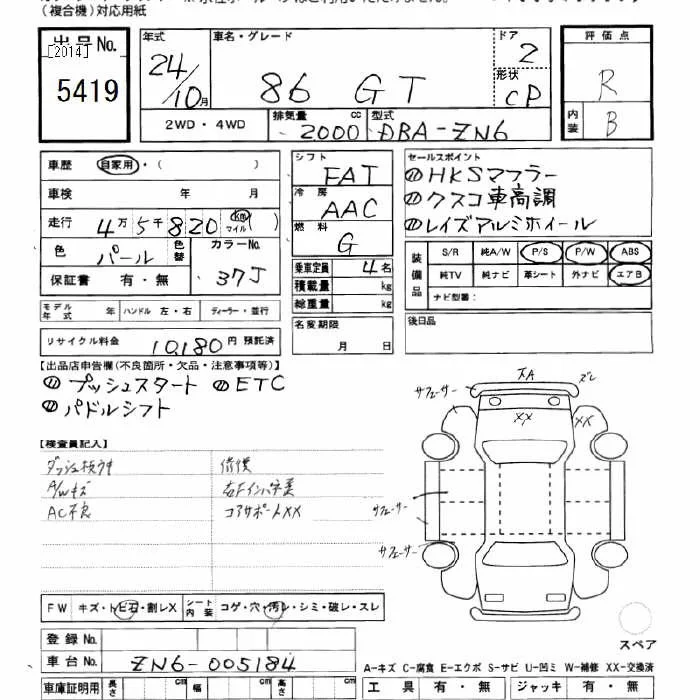 （複合機）対応用紙
出品No.
[2014]
5419
年式
24/10月
車名・グレード
86 GT
ドア
2
形状
CP
評価点
R
内装
B
2WD・4WD
排気量
2000cc
型式
DBA-ZN6
車歴
自家用・（　　　）
車検　年　月
走行
4万5千820
km
マイル
色
パール
色替
カラーNo.
37J
保証書 有・無
モデル年式
年 ハンドル 左・右 ディーラー・並行
リサイクル料金
10,180円 預託済
シフト
FAT
冷房
AAC
燃料
G
乗車定員 4名
積載量 kg
総重量 kg
名変期限
月 日
セールスポイント
HKSマフラー
クスコ車高調
レイズアルミホイール
装備品
S/R 純A/W P/S P/W ABS
純TV 純ナビ 革シート 外ナビ エアB
ナビ型番：
後日品
【出品店申告欄（不良箇所・欠品・注意事項等）】
プッシュスタート ETC
パドルシフト
【検査員記入】
ダッシュ板ウキ
A/Wキズ
AC不良
修復
コアサポートXX
XA
ズレ
サフェーサー
XX
XX
サフェーサー
サフェーサー
FW キズ・トビ石・割レX
シート内装 コゲ・穴・汚レ・シミ・破レ・スレ
スペア
登録No.
車台No.
ZN6-005184
A-キズ C-腐食 E-エクボ S-サビ U-凹ミ W-補修 XX-交換済
車庫証明用 長さ cm 幅 cm 高さ cm
工具 有・無 ジャッキ 有・無